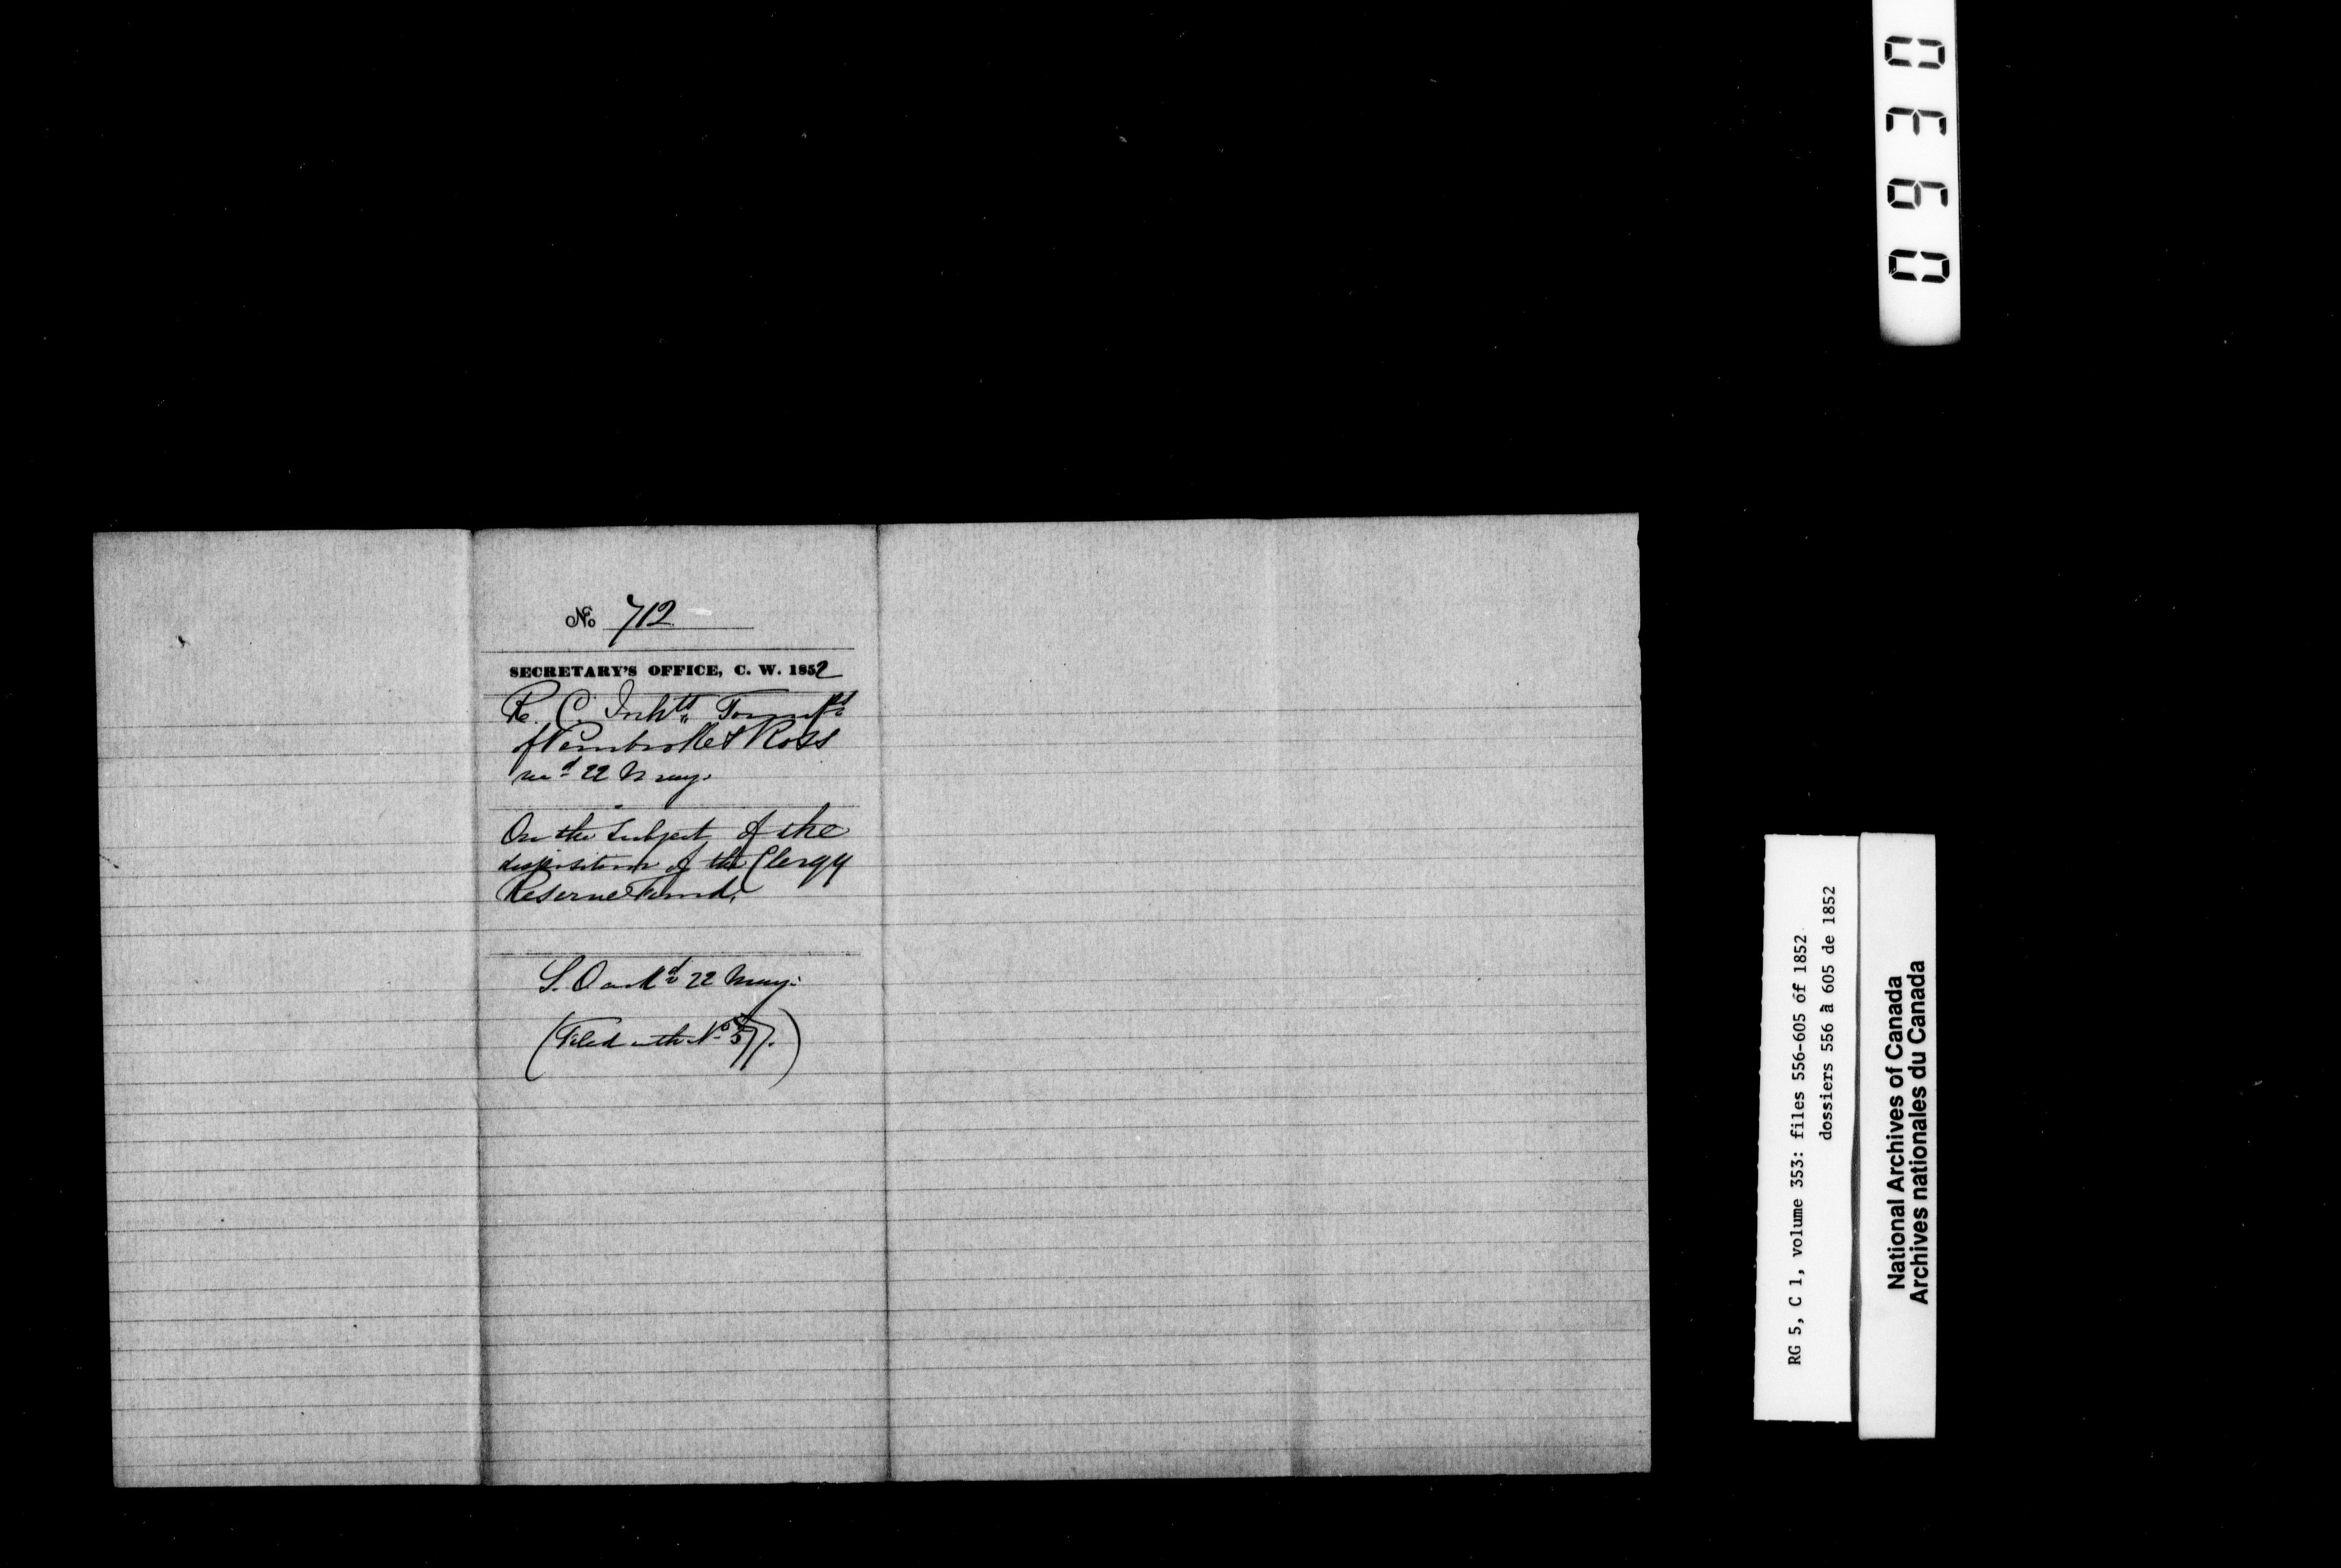 No 712
SECRETARY'S OFFICE, C. W. 1852
R. C. Inhts Townsps
of Pembroke & Ross
recd 22 May.
On the Subject of the
disposition of the Clergy
Reserve Fund.
S. O. ackd 22 May.
(Filed with No 577.)
0390
RG 5, C 1, volume 353: files 556-605 of 1852
dossiers 556 à 605 de 1852
National Archives of Canada
Archives nationales du Canada